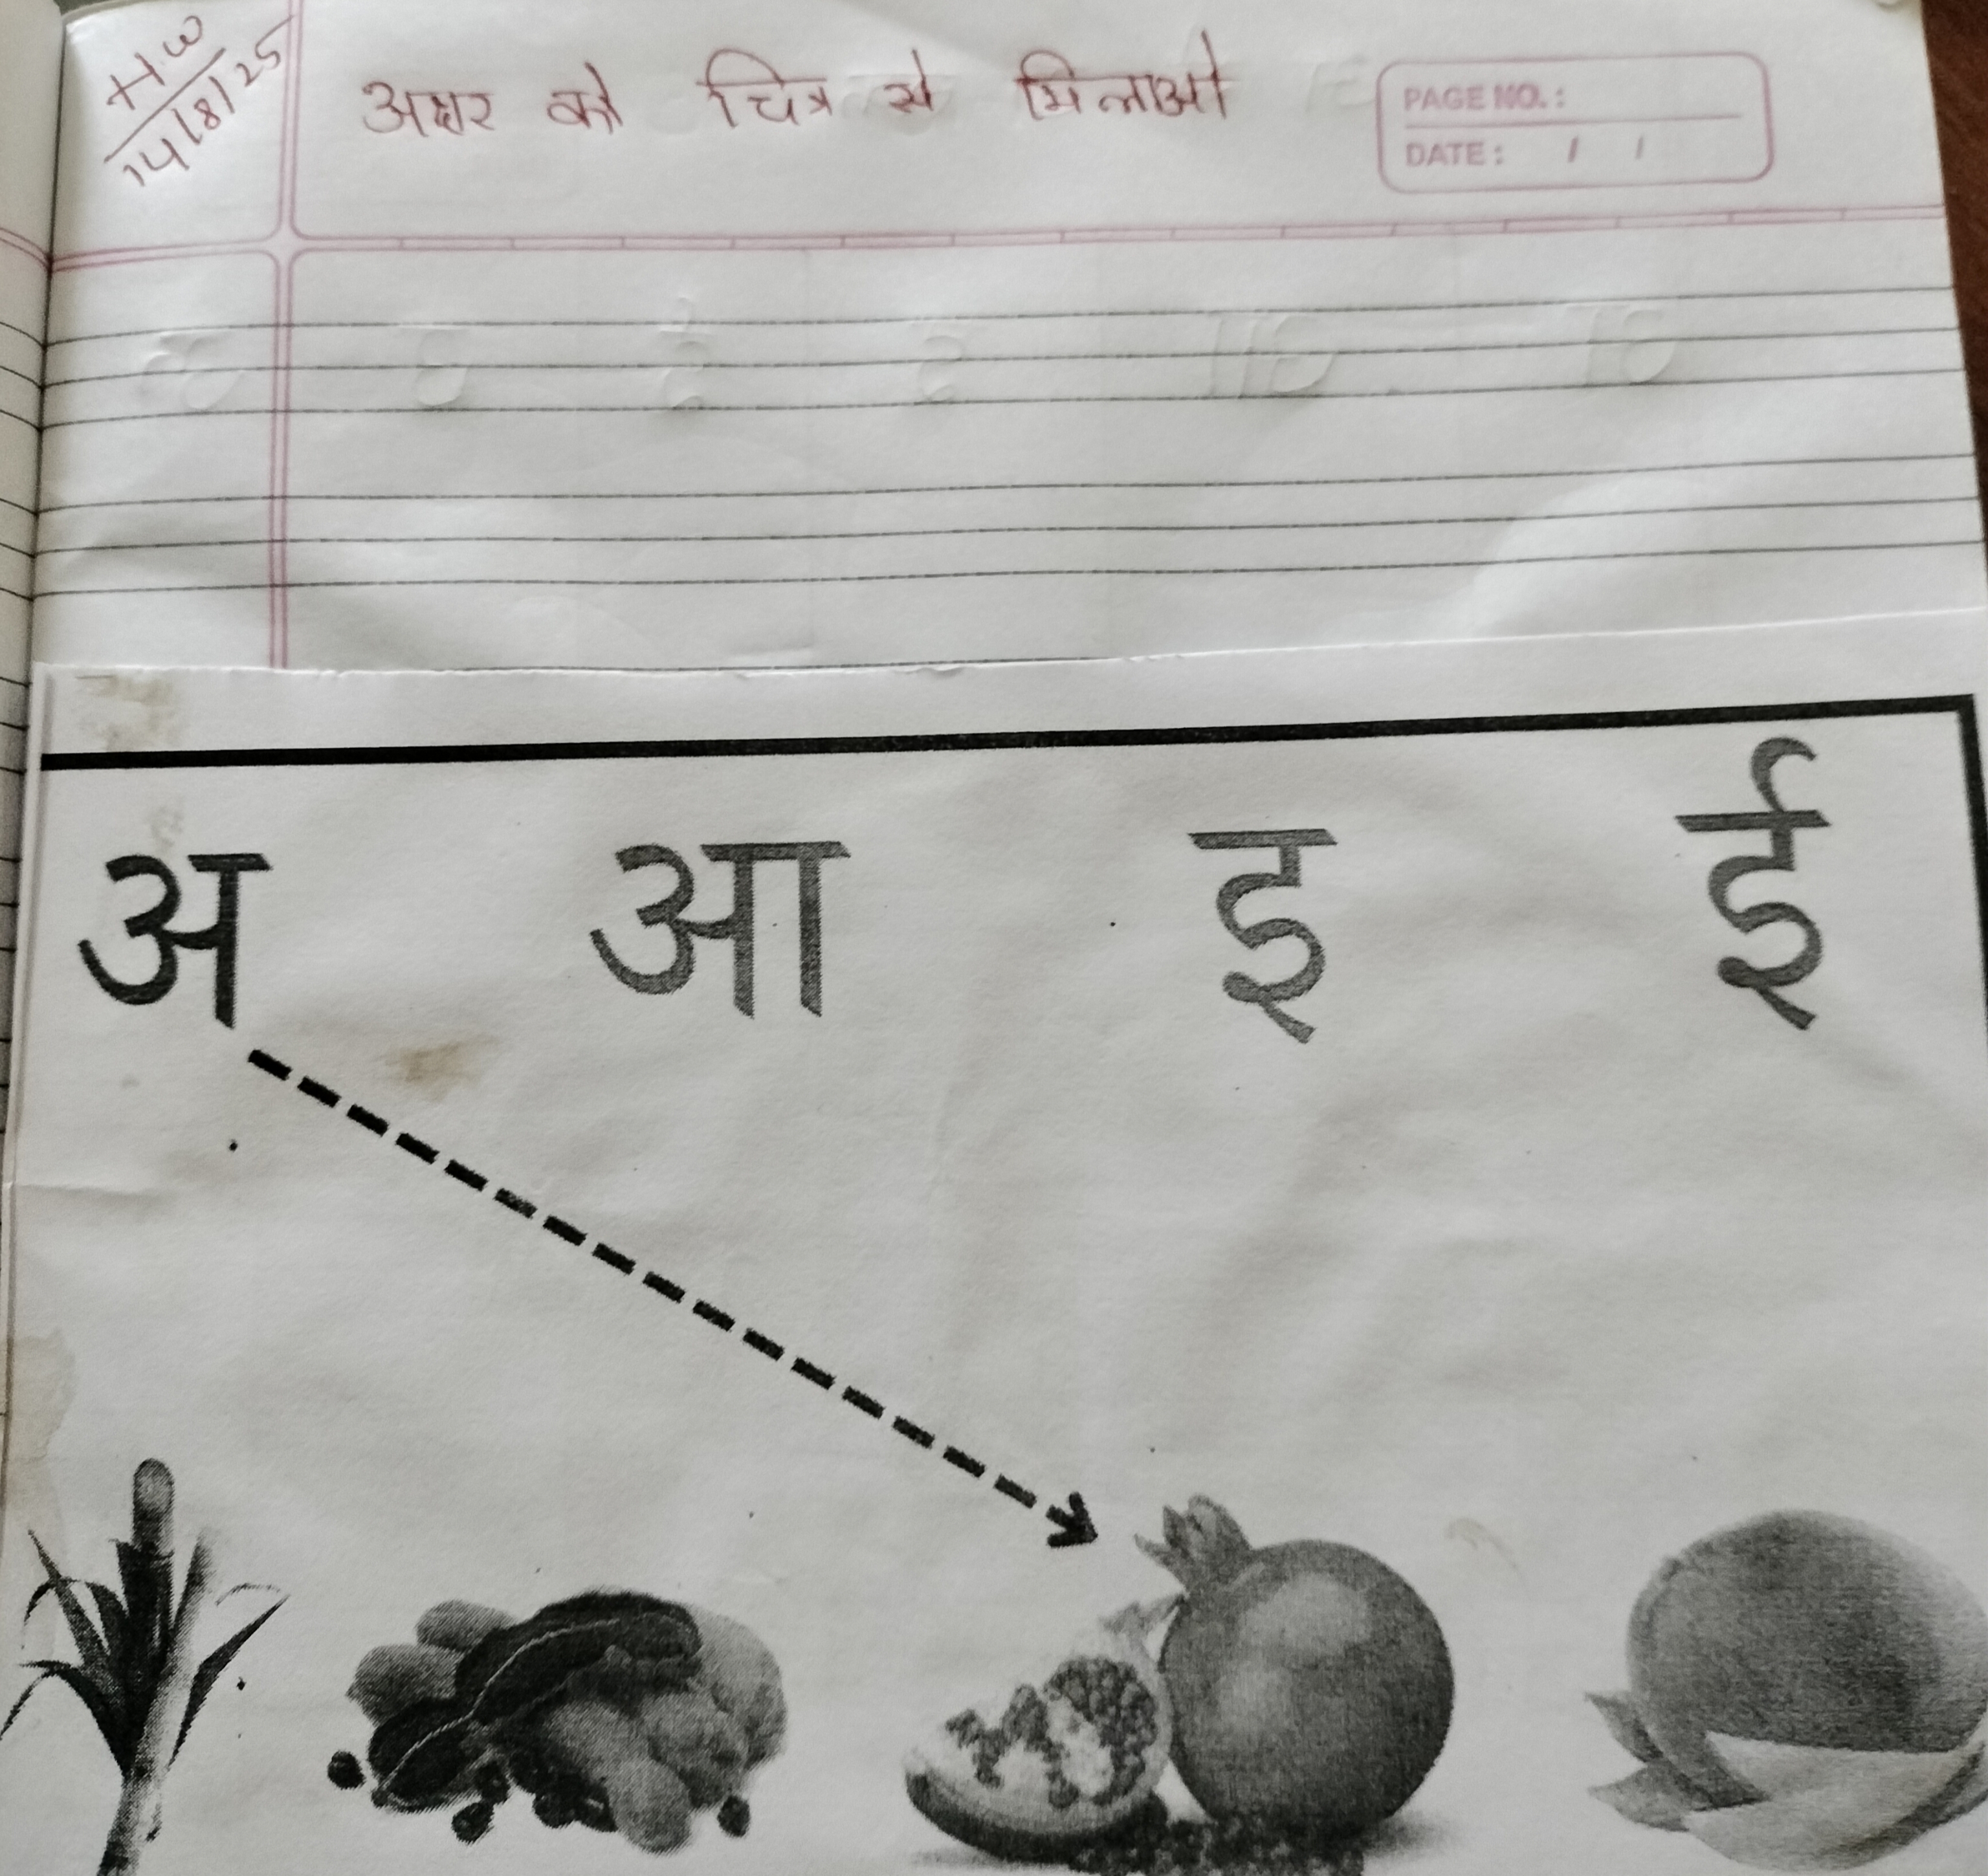 H.W
14/8/25
अक्षर को चित्र से मिलाओ
PAGE NO.:
DATE: / /
अ आ इ ई